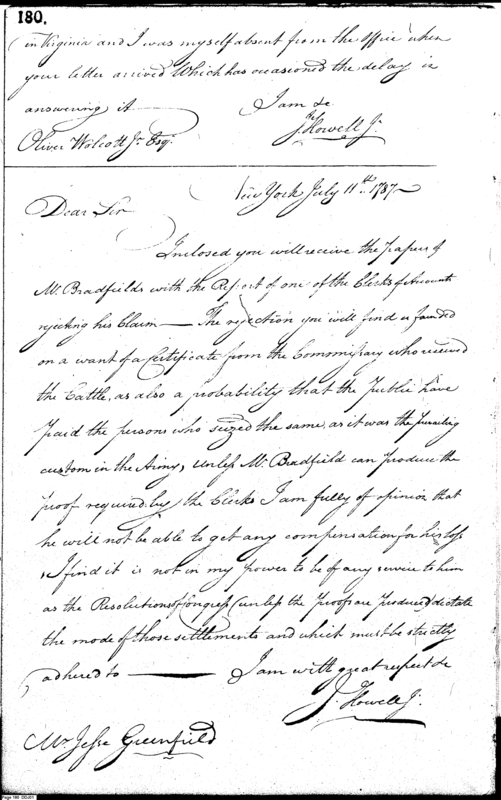 180.
in Virginia and I was myself absent from the Office when
your letter arrived Which has occasioned the delay in
answering it
I am &c
Js. Howell Jr.
Oliver Wolcott Jr. Esqr.
New York July 11th. 1787
Dear Sir
Inclosed you will receive the papers of
Mr. Bradfields with the Report of one of the Clerks of Accounts
rejecting his Claim — The rejection you will find is founded
on a want of a Certificate from the Commissary who received
the Cattle, as also a probability that the Public have
paid the persons who seized the same, as it was the prevailing
custom in the Army, Unless Mr. Bradfield can produce the
proof required by the Clerks I am fully of opinion that
he will not be able to get any compensation for his loss
I find it is not in my power to be of any service to him
as the Resolutions of Congress (unless the Proofs are produced) dictate
the mode of those settlements and which must be strictly
adhered to — I am with great respect &c
Js. Howell Jr.
Mr. Jesse Greenfield